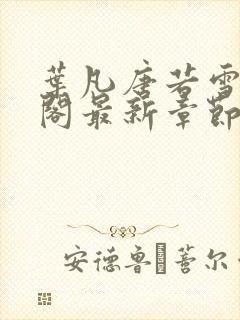 葉凡唐若雪
閣最新章節
安德魯 蓍尔